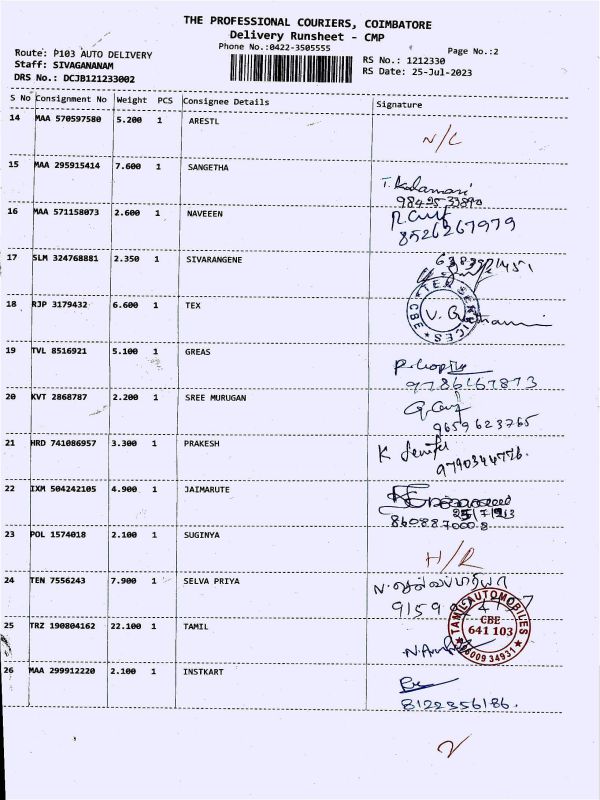 THE PROFESSIONAL COURIERS, COIMBATORE
Delivery Runsheet - CMP
Phone No.:0422-3505555
Page No.:2
Route: P103 AUTO DELIVERY
RS No.: 1212330
Staff: SIVAGANANAM
RS Date: 25-Jul-2023
DRS No.: DCJB121233002
S No Consignment No Weight PCS Consignee Details Signature
14 MAA 570597580 5.200 1 ARESTL
N/C
15 MAA 295915414 7.600 1 SANGETHA
9842533890
16 MAA 571158073 2.600 1 NAVEEEN
8526267979
17 SLM 324768881 2.350 1 SIVARANGENE
18 RJP 3179432 6.600 1 TEX
TEX SERVICES CBE
19 TVL 8516921 5.100 1 GREAS
9786167873
20 KVT 2868787 2.200 1 SREE MURUGAN
9659623765
21 HRD 741086957 3.300 1 PRAKESH
K
9790344776.
22 IXM 504242105 4.900 1 JAIMARUTE
25/7/23
8608870008
23 POL 1574018 2.100 1 SUGINYA
H/R
24 TEN 7556243 7.900 1 SELVA PRIYA
N. செல்வப்பிரியா
25 TRZ 190804162 22.100 1 TAMIL
TAMIL AUTOMOBILES
CBE
641 103
26 MAA 299912220 2.100 1 INSTKART
8122356186.